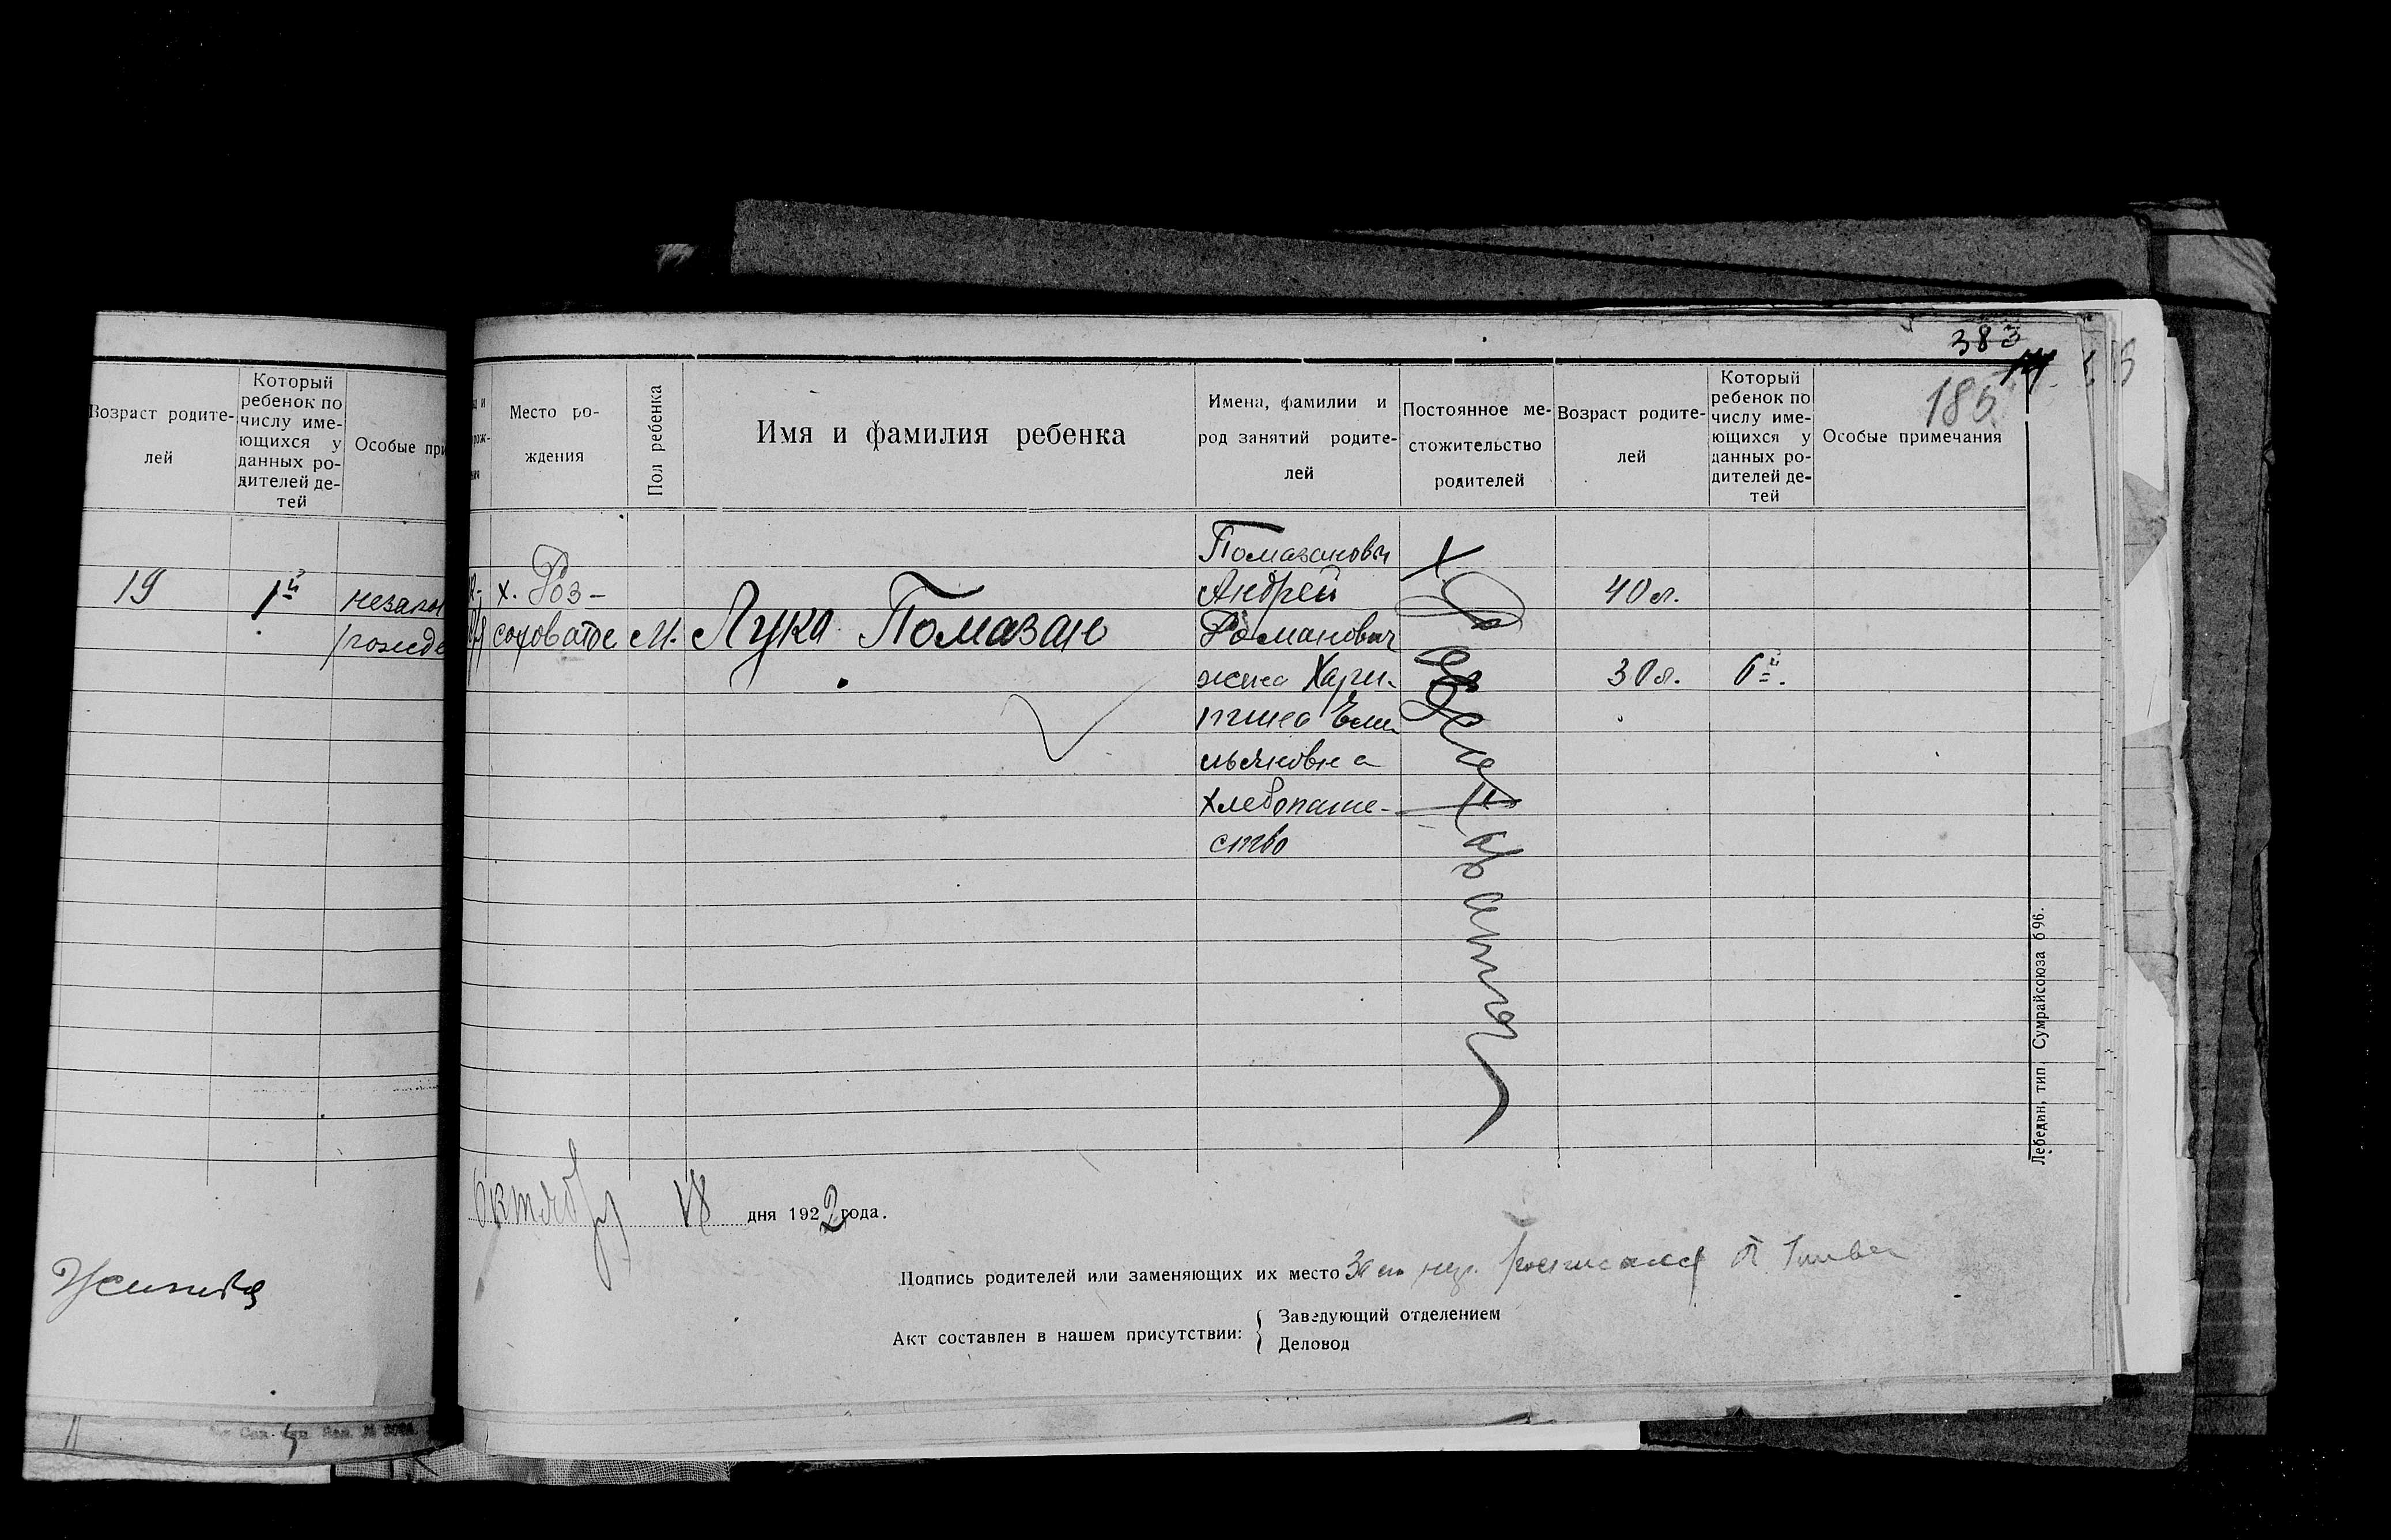 Возраст родите-
лей
Который
ребенок по
числу име-
ющихся у
данных ро-
дителей де-
тей
Особые при
19
1й
незакон
рожде
383
186
Место ро-
ждения
Пол ребенка
Имя и фамилия ребенка
Имена, фамилии и
род занятий родите-
лей
Постоянное ме-
стожительство
родителей
Возраст родите-
лей
Который
ребенок по
числу име-
ющихся у
данных ро-
дителей де-
тей
Особые примечания
х. Роз-
соховатое
М.
Лука Помазан
Помазановы
Андрей
Романович
жена Хари-
тина Еми
льяновна
хлебопаше-
ство
х.
40 л.
30 л.
6й.
Лебедин, тип. Сумрайсоюза 696.
Октябр 18 дня 1922 года.
Подпись родителей или заменяющих их место За их нег. росписался П.
Акт составлен в нашем присутствии:
Заведующий отделением
Деловод